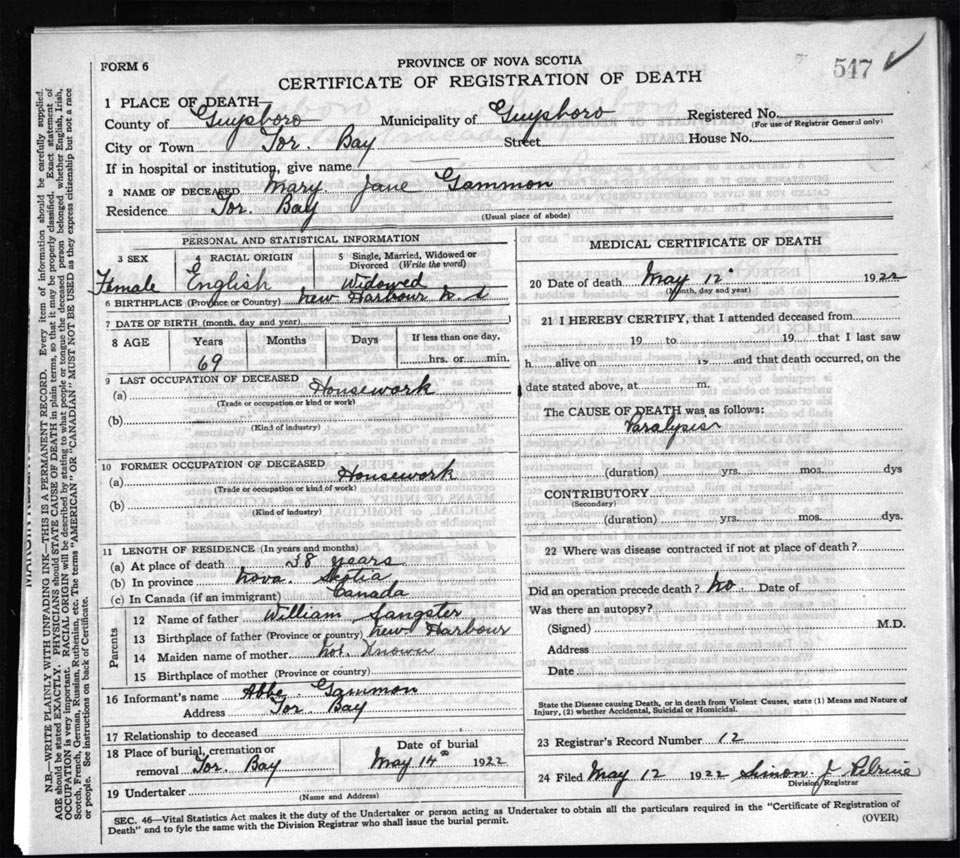 FORM 6
PROVINCE OF NOVA SCOTIA
547
CERTIFICATE OF REGISTRATION OF DEATH
1 PLACE OF DEATH—
County of Guysboro Municipality of Guysboro Registered No.
(For use of Registrar General only)
City or Town Tor. Bay Street House No.
If in hospital or institution, give name
2 NAME OF DECEASED Mary Jane Gammon
Residence Tor. Bay
(Usual place of abode)
PERSONAL AND STATISTICAL INFORMATION
3 SEX 4 RACIAL ORIGIN 5 Single, Married, Widowed or Divorced (Write the word)
Female English Widowed
6 BIRTHPLACE (Province or Country) New Harbour N. S
7 DATE OF BIRTH (month, day and year)
8 AGE Years Months Days If less than one day,
69 hrs. or min.
9 LAST OCCUPATION OF DECEASED
(a) Housework
(Trade or occupation or kind or work)
(b)
(Kind of industry)
10 FORMER OCCUPATION OF DECEASED
(a) Housework
(Trade or occupation or kind or work)
(b)
(Kind of industry)
11 LENGTH OF RESIDENCE (In years and months)
(a) At place of death 38 years
(b) In province Nova Scotia
(c) In Canada (if an immigrant) Canada
Parents
12 Name of father William Sangster
13 Birthplace of father (Province or country) New Harbour
14 Maiden name of mother Not Known
15 Birthplace of mother (Province or Country)
16 Informant's name Abbe Gammon
Address Tor Bay
17 Relationship to deceased
18 Place of burial, cremation or removal Tor. Bay
Date of burial
May 14th 1922
19 Undertaker
(Name and Address)
MEDICAL CERTIFICATE OF DEATH
20 Date of death May 12 1922
(Month, day and year)
21 I HEREBY CERTIFY, that I attended deceased from
19 to 19 that I last saw
h alive on 19 and that death occurred, on the
date stated above, at m.
The CAUSE OF DEATH was as follows:
Paralysis
(duration) yrs. mos. dys
CONTRIBUTORY
(Secondary)
(duration) yrs. mos. dys.
22 Where was disease contracted if not at place of death?
Did an operation precede death? No Date of
Was there an autopsy?
(Signed) M.D.
Address
Date
State the Disease causing Death, or in death from Violent Causes, state (1) Means and Nature of
Injury, (2) whether Accidental, Suicidal or Homicidal.
23 Registrar's Record Number 12
24 Filed May 12 1922 Simon J Pelrine
Division Registrar
SEC. 46—Vital Statistics Act makes it the duty of the Undertaker or person acting as Undertaker to obtain all the particulars required in the "Certificate of Registration of
Death" and to fyle the same with the Division Registrar who shall issue the burial permit.
(OVER)
N.B.—WRITE PLAINLY WITH UNFADING INK—THIS IS A PERMANENT RECORD. Every item of information should be carefully supplied.
AGE should be stated EXACTLY. PHYSICIANS should STATE CAUSE OF DEATH in plain terms, so that it may be properly classified. Exact statement of
OCCUPATION is very important. RACIAL ORIGIN will be described by stating to what people or tongue the deceased person belonged whether English, Irish,
Scotch, French, German, Russian, Ruthenian, etc. The terms "AMERICAN" OR "CANADIAN" MUST NOT BE USED as they express citizenship but not a race
or people. See instructions on back of Certificate.